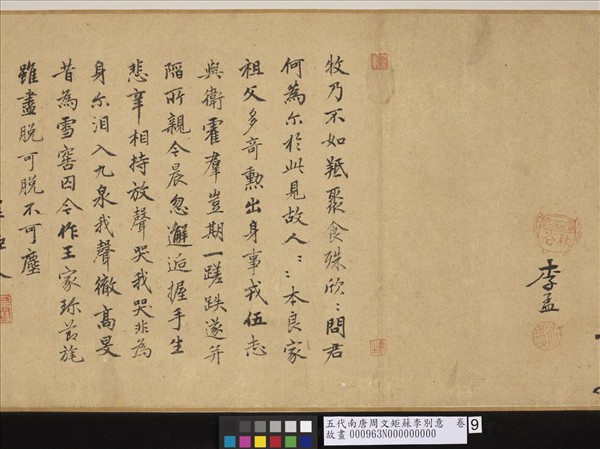 李孟
牧乃不如羝聚食殊欣〻問君
何為尒於此見故人〻本良家
祖父多奇勲出身事戎伍志
與衛霍羣豈期一蹉跌遂并
陷所親今晨忽邂逅握手生
悲辛相持放聲哭我哭非為
身尒泪入九泉我聲徹高旻
昔為雪窖囚今作王家珎莭旄
雖盡脫可脫不可塵
五代南唐周文矩蘇李別意 卷 9
故畫 000963N000000000